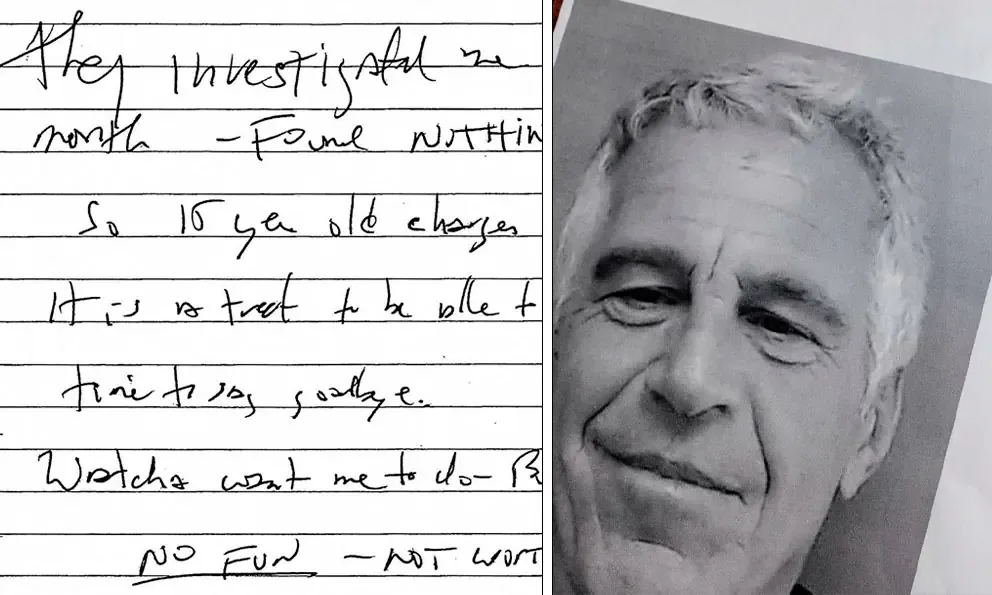 They investigated me
month – Found NOTHIN
So 15 year old charges
It is a treat to be able t
time to say goodbye.
Watcha want me to do – B
NO FUN – NOT WORT